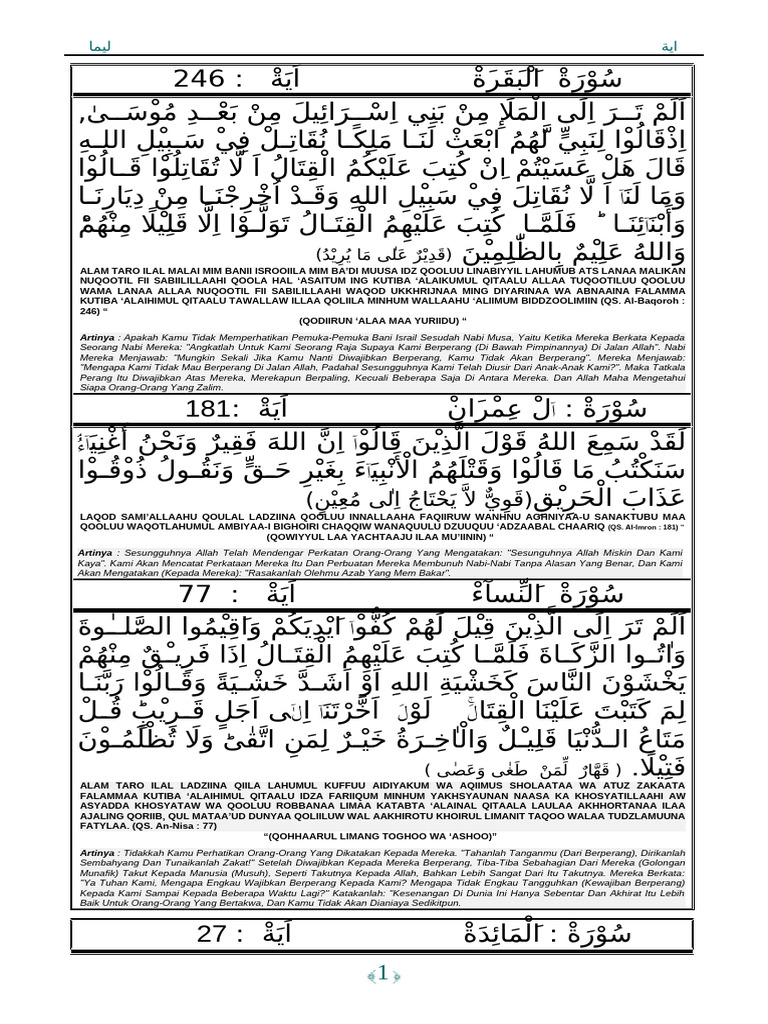 اية ليما
سُوْرَةْ اَلْبَقَرَةْ اَيَةْ : 246
اَلَمْ تَرَ اِلَى الْمَلَإِ مِنْ بَنِي اِسْرَائِيلَ مِنْ بَعْدِ مُوْسَىٰ,
اِذْقَالُوْا لِنَبِيٍّ لَّهُمُ ابْعَثْ لَنَا مَلِكًا نُقَاتِلْ فِيْ سَبِيْلِ اللهِ
قَالَ هَلْ عَسَيْتُمْ اِنْ كُتِبَ عَلَيْكُمُ الْقِتَالُ اَ لَّا تُقَاتِلُوْا قَالُوْا
وَمَا لَنَآ اَ لَّا نُقَاتِلَ فِيْ سَبِيْلِ اللهِ وَقَدْ اُخْرِجْنَا مِنْ دِيَارِنَا
وَأَبْنَآئِنَا ۗ فَلَمَّا كُتِبَ عَلَيْهِمُ الْقِتَالُ تَوَلَّوْا اِلَّا قَلِيْلًا مِنْهُمْ
وَاللهُ عَلِيْمٌ بِالظّٰلِمِيْنَ (قَدِيْرٌ عَلٰى مَا يُرِيْدُ)
ALAM TARO ILAL MALAI MIM BANII ISROOIILA MIM BA'DI MUUSA IDZ QOOLUU LINABIYYIL LAHUMUB ATS LANAA MALIKAN
NUQOOTIL FII SABIILILLAAHI QOOLA HAL 'ASAITUM ING KUTIBA 'ALAIKUMUL QITAALU ALLAA TUQOOTILUU QOOLUU
WAMA LANAA ALLAA NUQOOTIL FII SABILILLAAHI WAQOD UKKHRIJNAA MING DIYARINAA WA ABNAAINA FALAMMA
KUTIBA 'ALAIHIMUL QITAALU TAWALLAW ILLAA QOLIILA MINHUM WALLAAHU 'ALIIMUM BIDDZOOLIMIIN (QS. Al-Baqoroh :
246) "
(QODIIRUN 'ALAA MAA YURIIDU) "
Artinya : Apakah Kamu Tidak Memperhatikan Pemuka-Pemuka Bani Israil Sesudah Nabi Musa, Yaitu Ketika Mereka Berkata Kepada
Seorang Nabi Mereka: "Angkatlah Untuk Kami Seorang Raja Supaya Kami Berperang (Di Bawah Pimpinannya) Di Jalan Allah". Nabi
Mereka Menjawab: "Mungkin Sekali Jika Kamu Nanti Diwajibkan Berperang, Kamu Tidak Akan Berperang". Mereka Menjawab:
"Mengapa Kami Tidak Mau Berperang Di Jalan Allah, Padahal Sesungguhnya Kami Telah Diusir Dari Anak-Anak Kami?". Maka Tatkala
Perang Itu Diwajibkan Atas Mereka, Merekapun Berpaling, Kecuali Beberapa Saja Di Antara Mereka. Dan Allah Maha Mengetahui
Siapa Orang-Orang Yang Zalim.
سُوْرَةْ : اٰلْ عِمْرَانْ اَيَةْ :181
لَقَدْ سَمِعَ اللهُ قَوْلَ الَّذِيْنَ قَالُوْا اِنَّ اللهَ فَقِيْرٌ وَنَحْنُ أَغْنِيَآءُ
سَنَكْتُبُ مَا قَالُوْا وَقَتْلَهُمُ الْأَنْبِيَآءَ بِغَيْرِ حَقٍّ وَنَقُولُ ذُوْقُوْا
عَذَابَ الْحَرِيْقِ(قَوِيٌّ لاَّ يَحْتَاجُ اِلٰى مُعِيْنٍ)
LAQOD SAMI'ALLAAHU QOULAL LADZIINA QOOLUU INNALLAAHA FAQIIRUW WANHNU AGHNIYAA-U SANAKTUBU MAA
QOOLUU WAQOTLAHUMUL AMBIYAA-I BIGHOIRI CHAQQIW WANAQUULU DZUUQUU 'ADZAABAL CHAARIQ (QS. Al-Imron : 181) "
(QOWIYYUL LAA YACHTAAJU ILAA MU'IININ) "
Artinya : Sesungguhnya Allah Telah Mendengar Perkatan Orang-Orang Yang Mengatakan: "Sesunguhnya Allah Miskin Dan Kami
Kaya". Kami Akan Mencatat Perkataan Mereka Itu Dan Perbuatan Mereka Membunuh Nabi-Nabi Tanpa Alasan Yang Benar, Dan Kami
Akan Mengatakan (Kepada Mereka): "Rasakanlah Olehmu Azab Yang Mem Bakar".
سُوْرَةْ اَلنِّسآءْ اَيَةْ : 77
اَلَمْ تَرَ اِلَى الَّذِيْنَ قِيْلَ لَهُمْ كُفُّوْا اَيْدِيَكُمْ وَاَقِيْمُوا الصَّلٰوةَ
وَاٰتُوا الزَّكَاةَ فَلَمَّا كُتِبَ عَلَيْهِمُ الْقِتَالُ إِذَا فَرِيْقٌ مِنْهُمْ
يَخْشَوْنَ النَّاسَ كَخَشْيَةِ اللهِ اَوْ اَشَدَّ خَشْيَةً وَقَالُوْا رَبَّنَا
لِمَ كَتَبْتَ عَلَيْنَا الْقِتَالَۚ لَوْلَآ اَخَّرْتَنَآ اِلٰٓى اَجَلٍ قَرِيْبٍۗ قُلْ
مَتَاعُ الدُّنْيَا قَلِيْلٌ وَالْاٰخِرَةُ خَيْرٌ لِمَنِ اتَّقٰىۗ وَلَا تُظْلَمُوْنَ
فَتِيْلًا. ( قَهَّارٌ لِّمَنْ طَغٰى وَعَصٰى )
ALAM TARO ILAL LADZIINA QIILA LAHUMUL KUFFUU AIDIYAKUM WA AQIIMUS SHOLAATAA WA ATUZ ZAKAATA
FALAMMAA KUTIBA 'ALAIHIMUL QITAALU IDZA FARIIQUM MINHUM YAKHSYAUNAN NAASA KA KHOSYATILLAAHI AW
ASYADDA KHOSYATAW WA QOOLUU ROBBANAA LIMAA KATABTA 'ALAINAL QITAALA LAULAA AKHHORTANAA ILAA
AJALING QORIIB, QUL MATAA'UD DUNYAA QOLIILUW WAL AAKHIROTU KHOIRUL LIMANIT TAQOO WALAA TUDZLAMUUNA
FATYLAA. (QS. An-Nisa : 77)
"(QOHHAARUL LIMANG TOGHOO WA 'ASHOO)"
Artinya : Tidakkah Kamu Perhatikan Orang-Orang Yang Dikatakan Kepada Mereka. "Tahanlah Tanganmu (Dari Berperang), Dirikanlah
Sembahyang Dan Tunaikanlah Zakat!" Setelah Diwajibkan Kepada Mereka Berperang, Tiba-Tiba Sebahagian Dari Mereka (Golongan
Munafik) Takut Kepada Manusia (Musuh), Seperti Takutnya Kepada Allah, Bahkan Lebih Sangat Dari Itu Takutnya. Mereka Berkata:
"Ya Tuhan Kami, Mengapa Engkau Wajibkan Berperang Kepada Kami? Mengapa Tidak Engkau Tangguhkan (Kewajiban Berperang)
Kepada Kami Sampai Kepada Beberapa Waktu Lagi?" Katakanlah: "Kesenangan Di Dunia Ini Hanya Sebentar Dan Akhirat Itu Lebih
Baik Untuk Orang-Orang Yang Bertakwa, Dan Kamu Tidak Akan Dianiaya Sedikitpun.
سُوْرَةْ : اَلْمَائِدَةْ اَيَةْ : 27
﴾1﴿